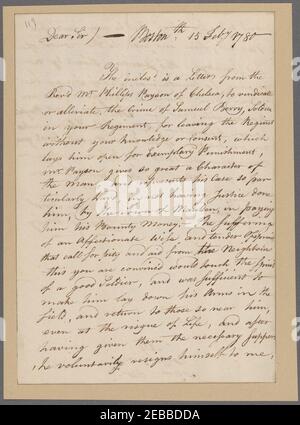 119
Dear Sir) — Boston 15 Feby 1780
The inclos'd is a Letter, from the
Revd Mr Phillips Payson of Chelsea, to vindicate
or alleviate, the Crime of Samuel Berry, Soldier
in your Regiment, for leaving the Regimt
without your knowledge or consent, which
lays him open for Exemplary Punishment,
Mr Payson gives so great a Character of
the Man and represents his Case so par
ticularly hard, by not having Justice done
him, by the Town of Malden, in paying
him his Bounty Money, The suffering
of an Affectionate Wife and tender Offspring
that call for pity and aid from their Neighbours
this you are convinced would touch the Spirit
of a good Soldier, and was sufficient to
make him lay down his Arms in the
field, and return to those so near him,
even at the risque of Life, and after
having given them the necessary support,
he voluntarily resigns himself to me,
alamy
Image ID: 2EBBDDA
www.alamy.com